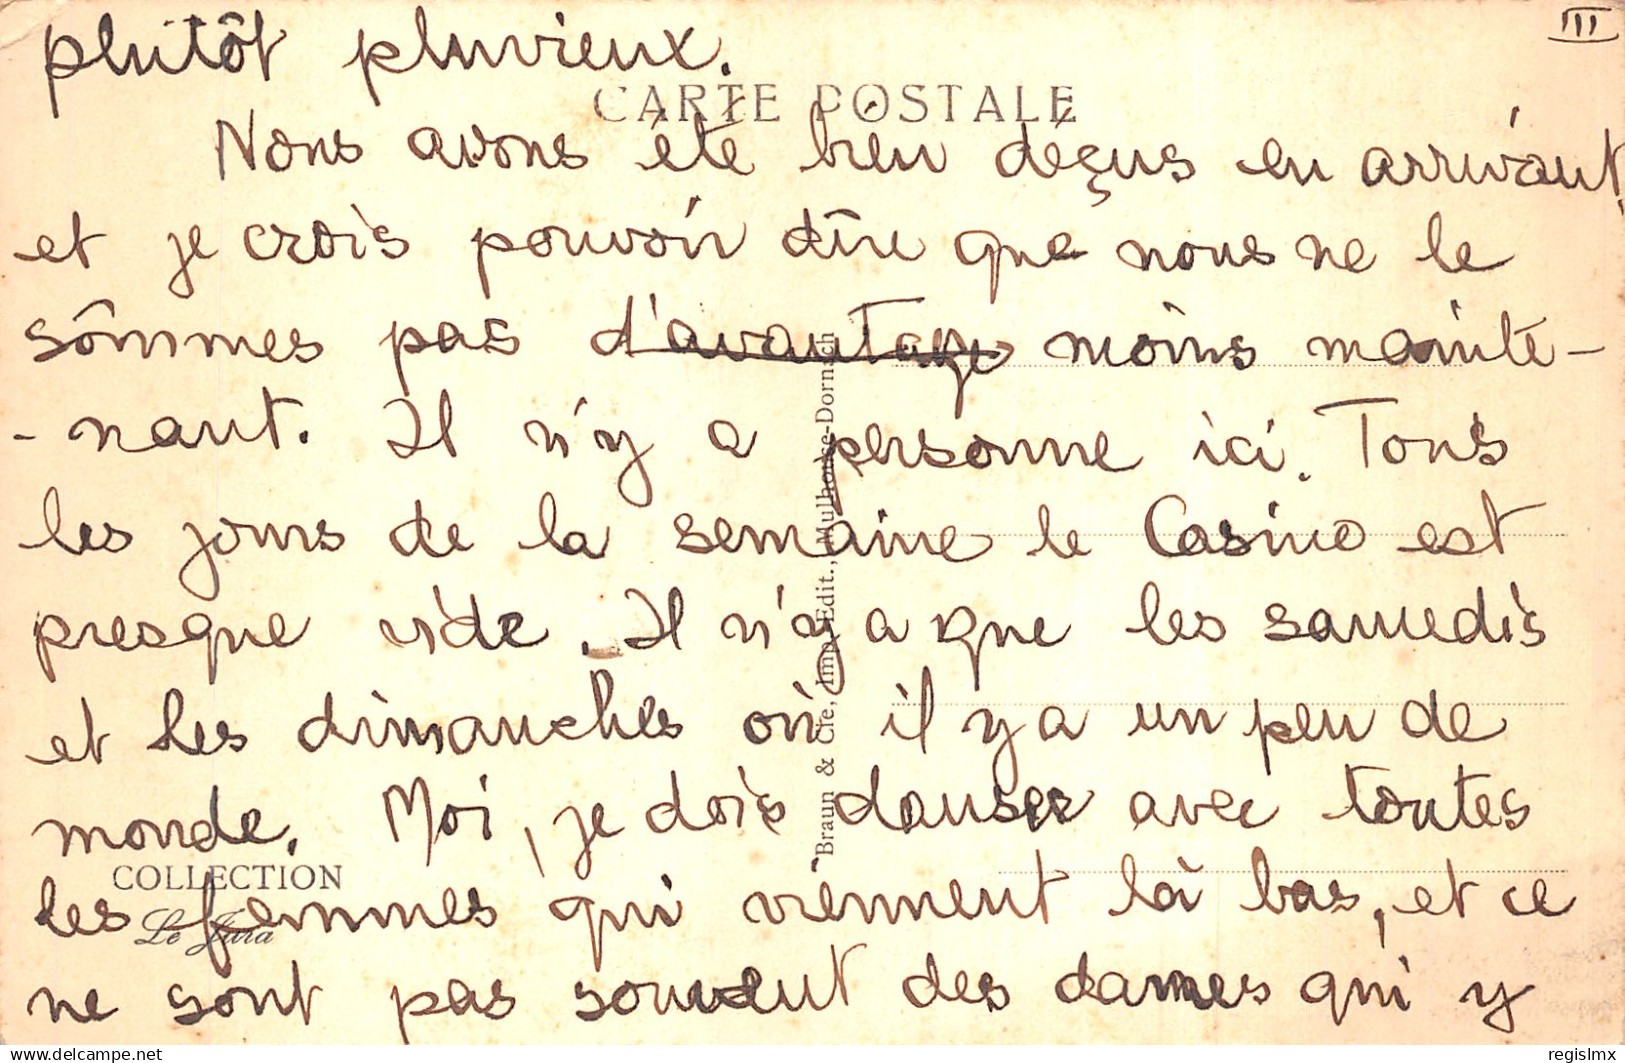 III
plutôt pluvieux.
CARTE POSTALE
Nous avons été bien déçus en arrivant,
et je crois pouvoir dire que nous ne le
sômmes pas d'avantage moins mainte-
-nant. Il n'y a personne ici. Tous
les jours de la semaine le Casino est
presque vide. Il n'y a que les samedis
et les dimanches où il y a un peu de
monde. Moi, je dois danser avec toutes
les femmes qui viennent là bas, et ce
ne sont pas souvent des dames qui y
COLLECTION
Le Jura
Braun & Cie, Imp.-Edit., Mulhouse-Dornach
delcampe.net
regislmx